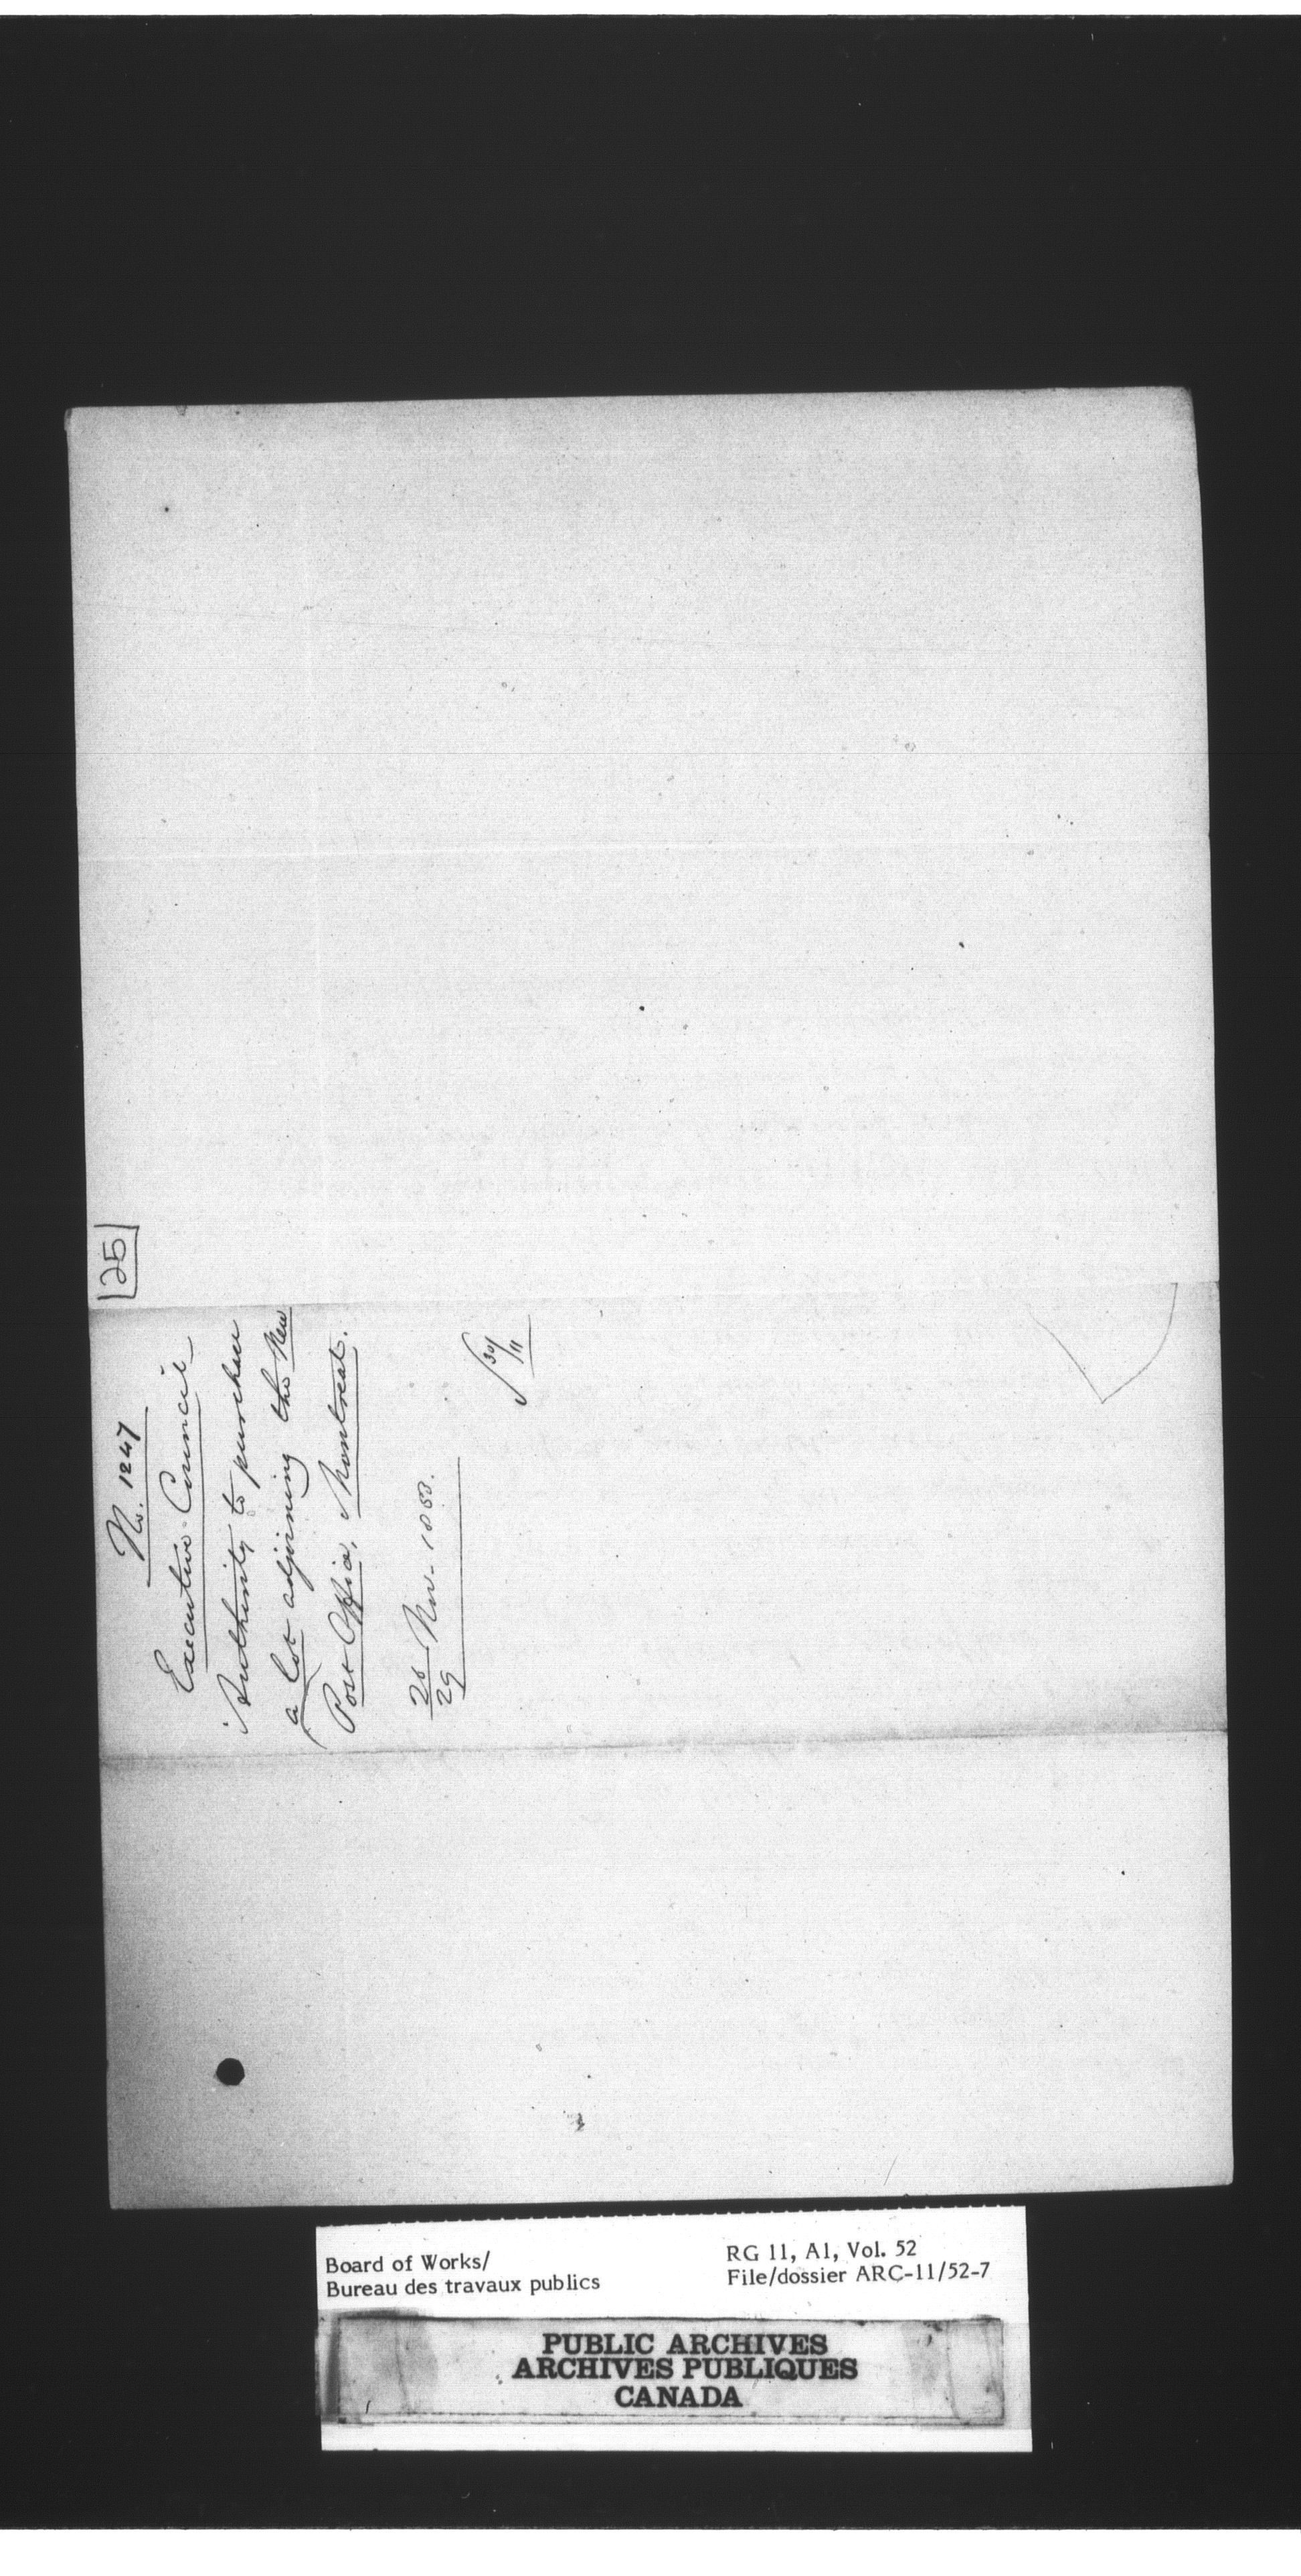 25
No. 1247
Executive Council
Authority to purchase
a lot adjoining the New
Post Office, Montreal.
26
29
Nov.
30/11
Board of Works/
Bureau des travaux publics
RG 11, A1, Vol. 52
File/dossier ARC-11/52-7
PUBLIC ARCHIVES
ARCHIVES PUBLIQUES
CANADA